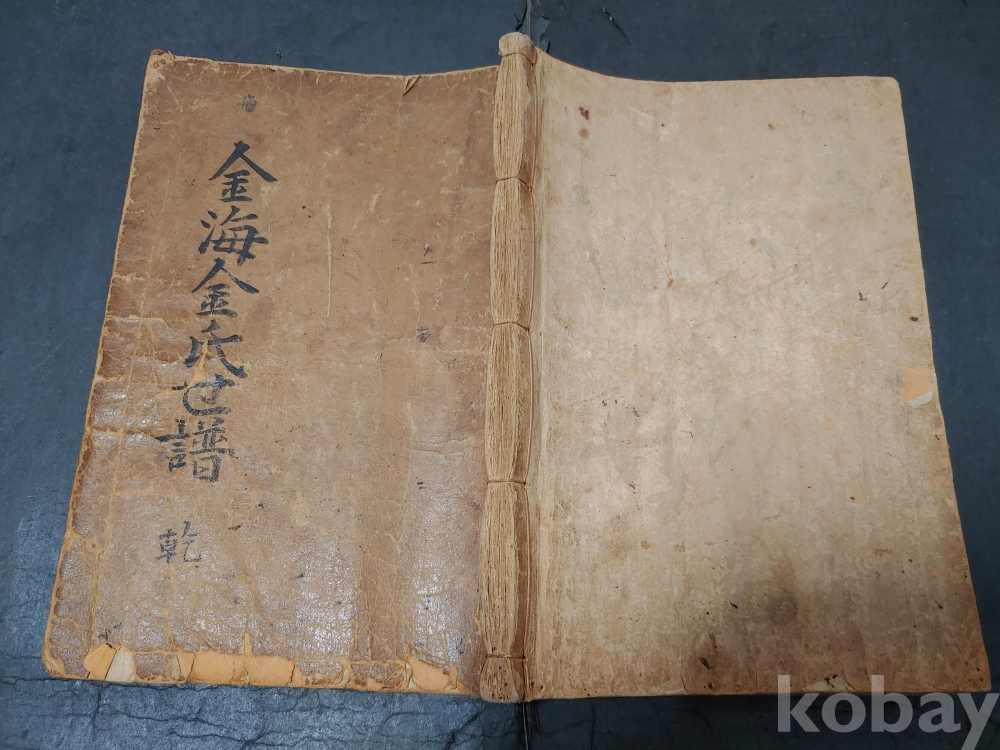 金海金氏世譜
乾
kobay